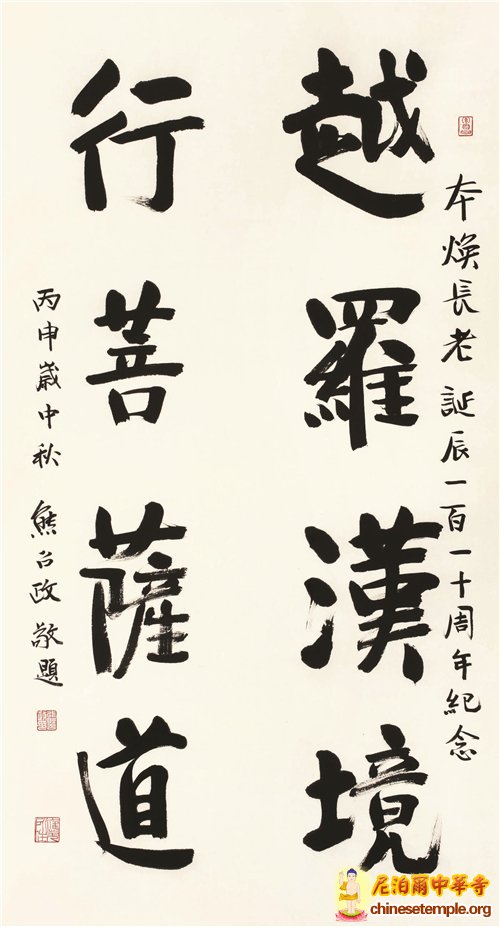 本煥長老誕辰一百一十周年紀念
越羅漢境
行菩薩道
丙申歲中秋 熊召政敬題
尼泊爾中華寺
chinesetemple.org